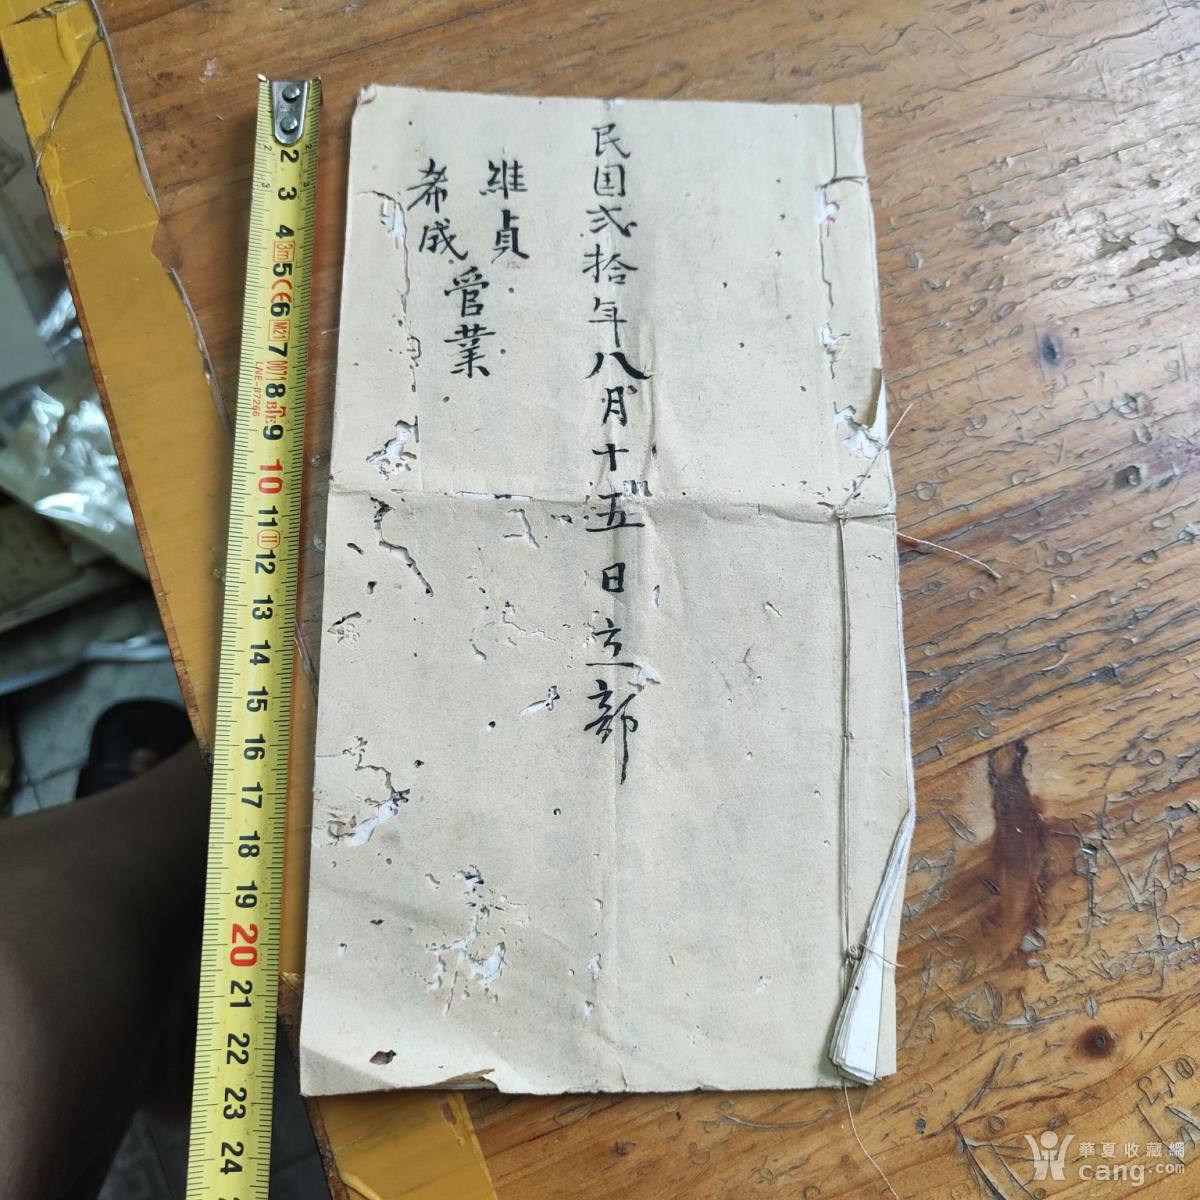 民国弍拾年八月十五日立部
維貞
希成
管業
2
3
4
3m
5
CE
6
M21
7
8
9
10
11
12
13
14
15
16
17
18
19
20
21
22
23
24
華夏收藏網
cang.com